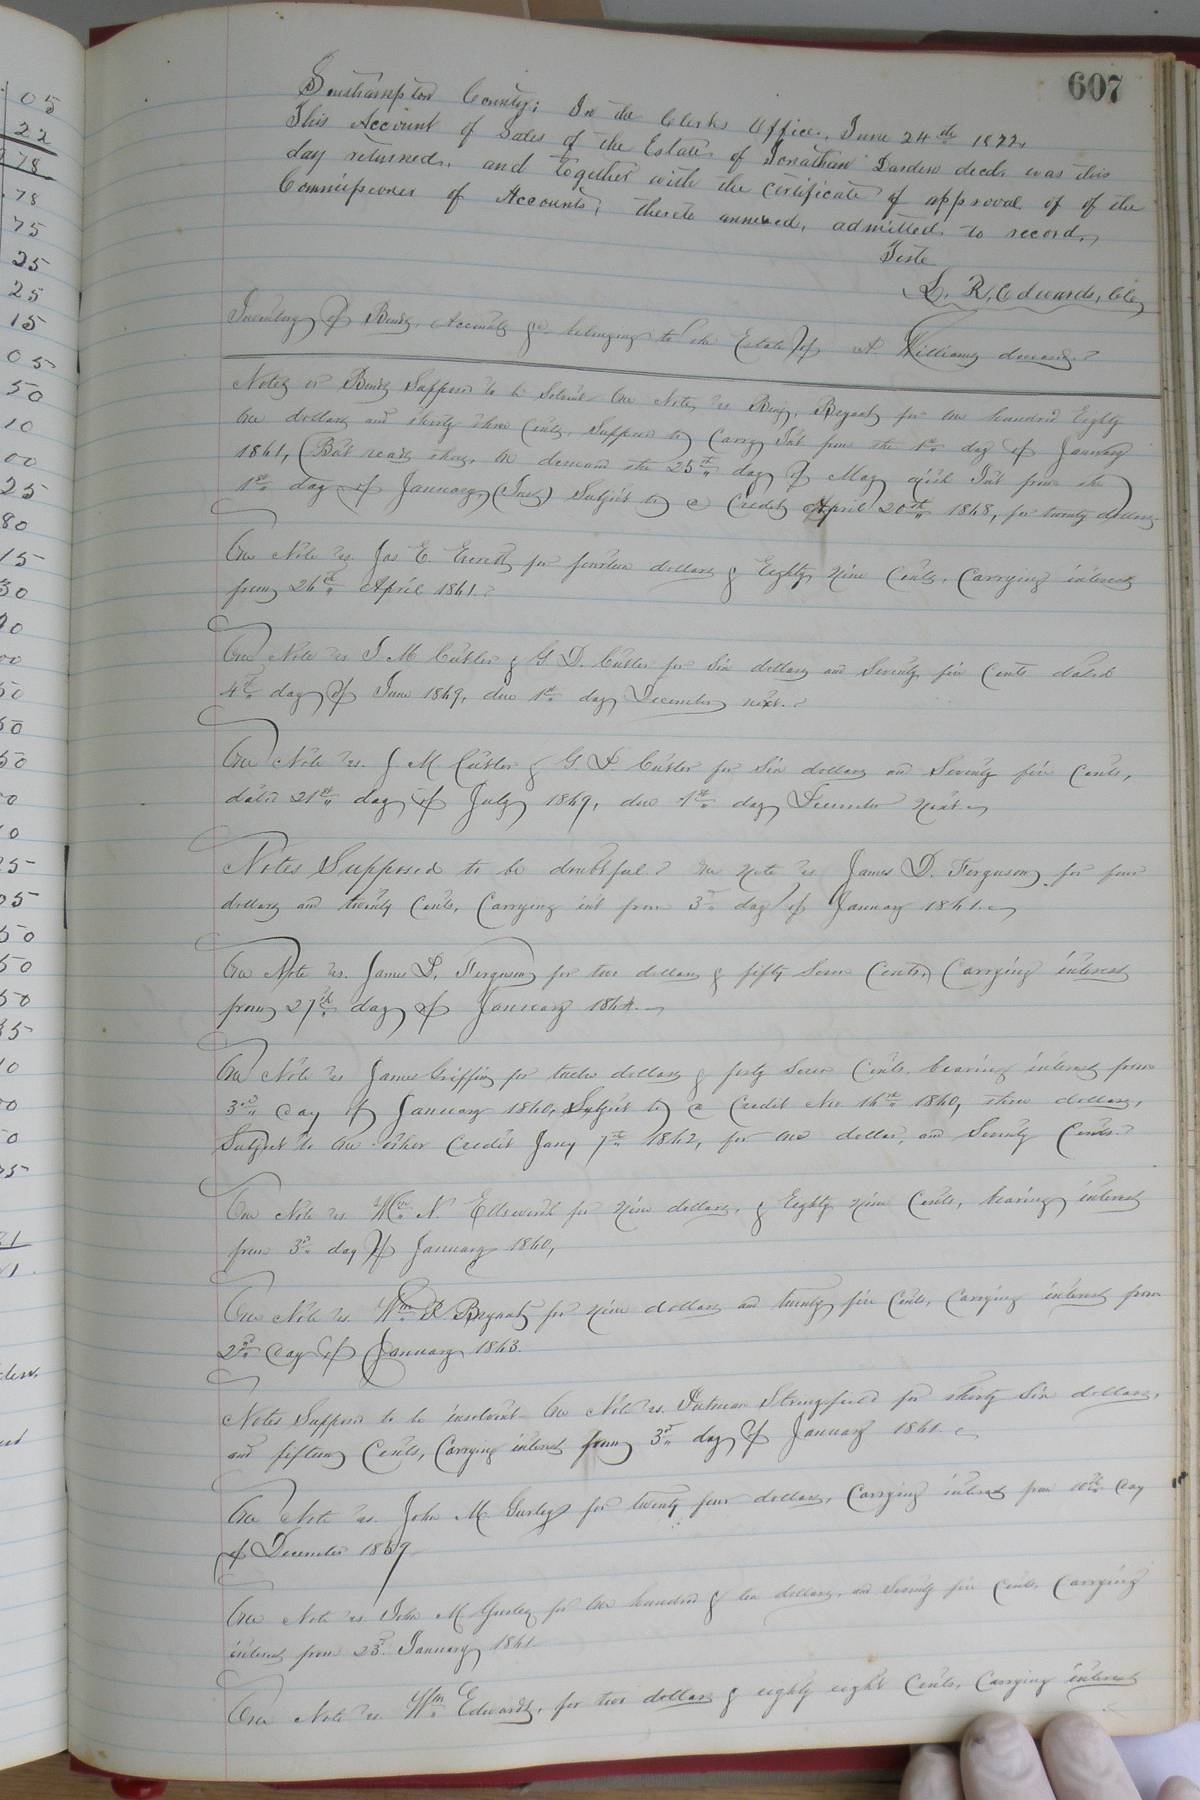 607
Southampton County; In the Clerks Office, June 24th 1872,
This Account of Sales of the Estate of Jonathan Darden decd. was this
day returned, and together with the certificate of approval of of the
Commissioner of Accounts, thereto annexed, admitted to record,
Teste
L. R. Edwards, Clk
Inventory of Bonds, Accounts &c belonging to the Estate of A. Williams deceased.
Notes or Bonds Supposed to be Solvent One Note vs Benj. Bryant for one hundred Eighty
One dollars and thirty three Cents, Supposed to Carry Int from the 1st day of January
1861, (But reads thus, On demand the 25th day of May with Int from the
1st day of January (Inst) Subject to a Credit April 20th 1868, for twenty dollars
One Note vs. Jas E. Everett for fourteen dollars & Eighty Nine Cents, Carrying interest
from 26th April 1861.
One Note vs J M Cutler & G. D. Cutler for Six dollars and Seventy five Cents dated
4th day of June 1869, due 1st day December next.
One Note vs. J M Cutler & G D. Cutler for Six dollars and Seventy five Cents,
dated 21st day of July 1869, due 1st day December Next.
Notes Supposed to be doubtful. One Note vs James D. Ferguson, for four
dollars and twenty Cents, Carrying int from 3rd day of January 1861.
One Note vs. James D. Ferguson for two dollars & fifty Seven Cents, Carrying interest
from 27th day of January 1864.
One Note vs James Griffin for twelve dollars & forty Seven Cents, bearing interest from
3rd day of January 1860, Subject to a Credit Nov 16th 1860, three dollars,
Subject to One other Credit Jany 7th 1862, for one dollar, and Seventy Cents.
One Note vs Wm. N. Ellsworth for Nine dollars, & Eighty Nine Cents, bearing interest
from 3rd day of January 1860,
One Note vs. Wm. D. Bryant for Nine dollars and twenty five Cents, Carrying interest from
2nd day of January 1863.
Notes Supposed to be insolvent One Note vs. Putman Stringfield for thirty Six dollars,
and fifteen Cents, Carrying interest from 3rd day of January 1861.
One Note vs. John M Gurley for twenty four dollars, Carrying interest from 10th day
of December 1859
One Note vs. John M. Gurley for One hundred & ten dollars, and Seventy five Cents, Carrying
interest from 23rd January 1861
One Note vs. Wm. Edwards, for two dollars & eighty eight Cents, Carrying interest